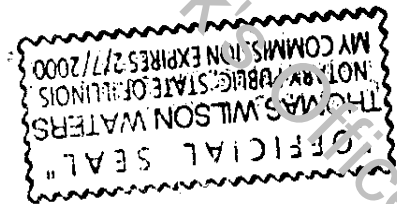 "OFFICIAL SEAL"
THOMAS WILSON WATERS
NOTARY PUBLIC, STATE OF ILLINOIS
MY COMMISSION EXPIRES 2/7/2000